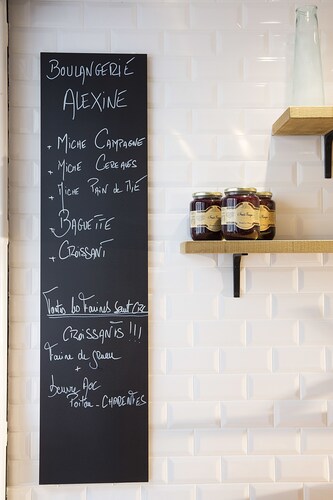 BOULANGERIE
ALEXINE
+ MICHE CAMPAGNE
+ MICHE CEREALES
+ MICHE PAIN de MIE
+ BAGUETTE
+ CROISSANT
Toutes les Farines sont
CROISSANTS !!!
Farine de gruau
+
beurre AOC
Poitou - CHARENTES